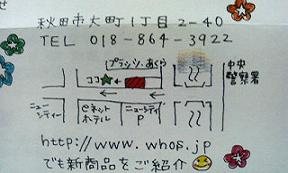 せ
秋田市大町1丁目2-40
TEL 018-864-3922
ブラッシュ・あくら
ココ
中央
警察署
ニュー
シティー
ピネット
ホテル
ニューシティ
P
http://www.whos.jp
でも新商品をご紹介